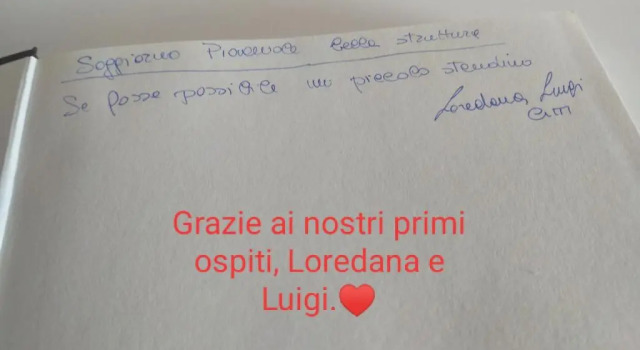 Soggiorno Piacevole bella struttura
Se fosse possibile un piccolo stendino
Loredana, Luigi
Grazie ai nostri primi
ospiti, Loredana e
Luigi.❤️